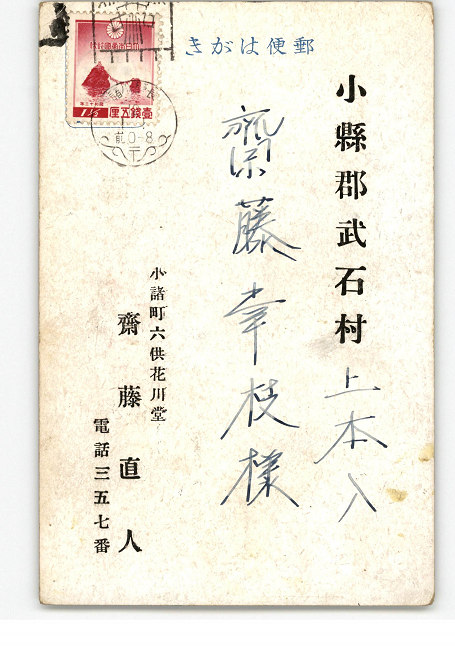 きがは便郵
小縣郡武石村上本入
齋藤幸枝様
小諸町六供花川堂
齋藤直人
電話三五七番
壹錢五厘
1½
前0-8